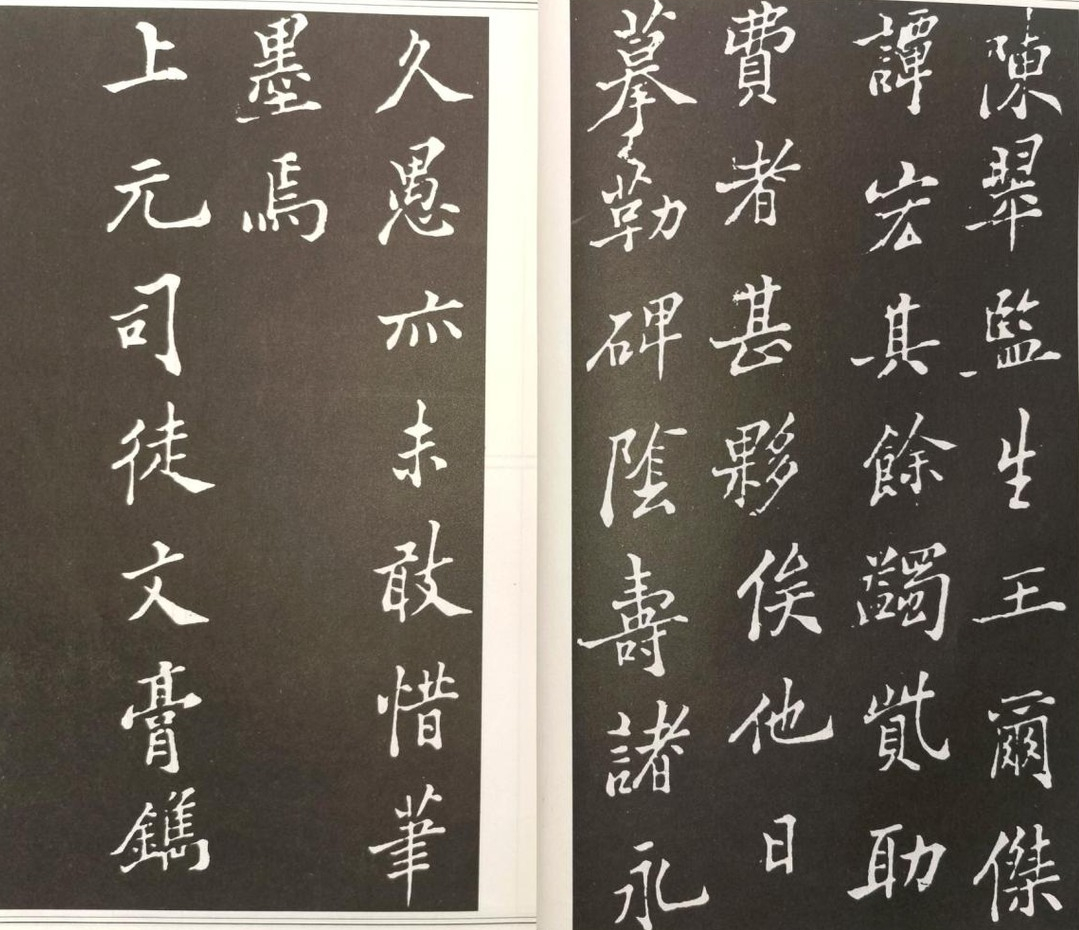 陳翠監生王爾傑
譚宏其餘蠲貲助
費者甚夥俟他日
摹勒碑隂壽諸永
久愚亦未敢惜筆
墨焉
上元司徒文膏鐫